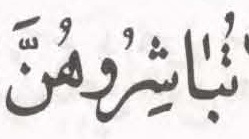 تُبَٰشِرُوهُنَّ